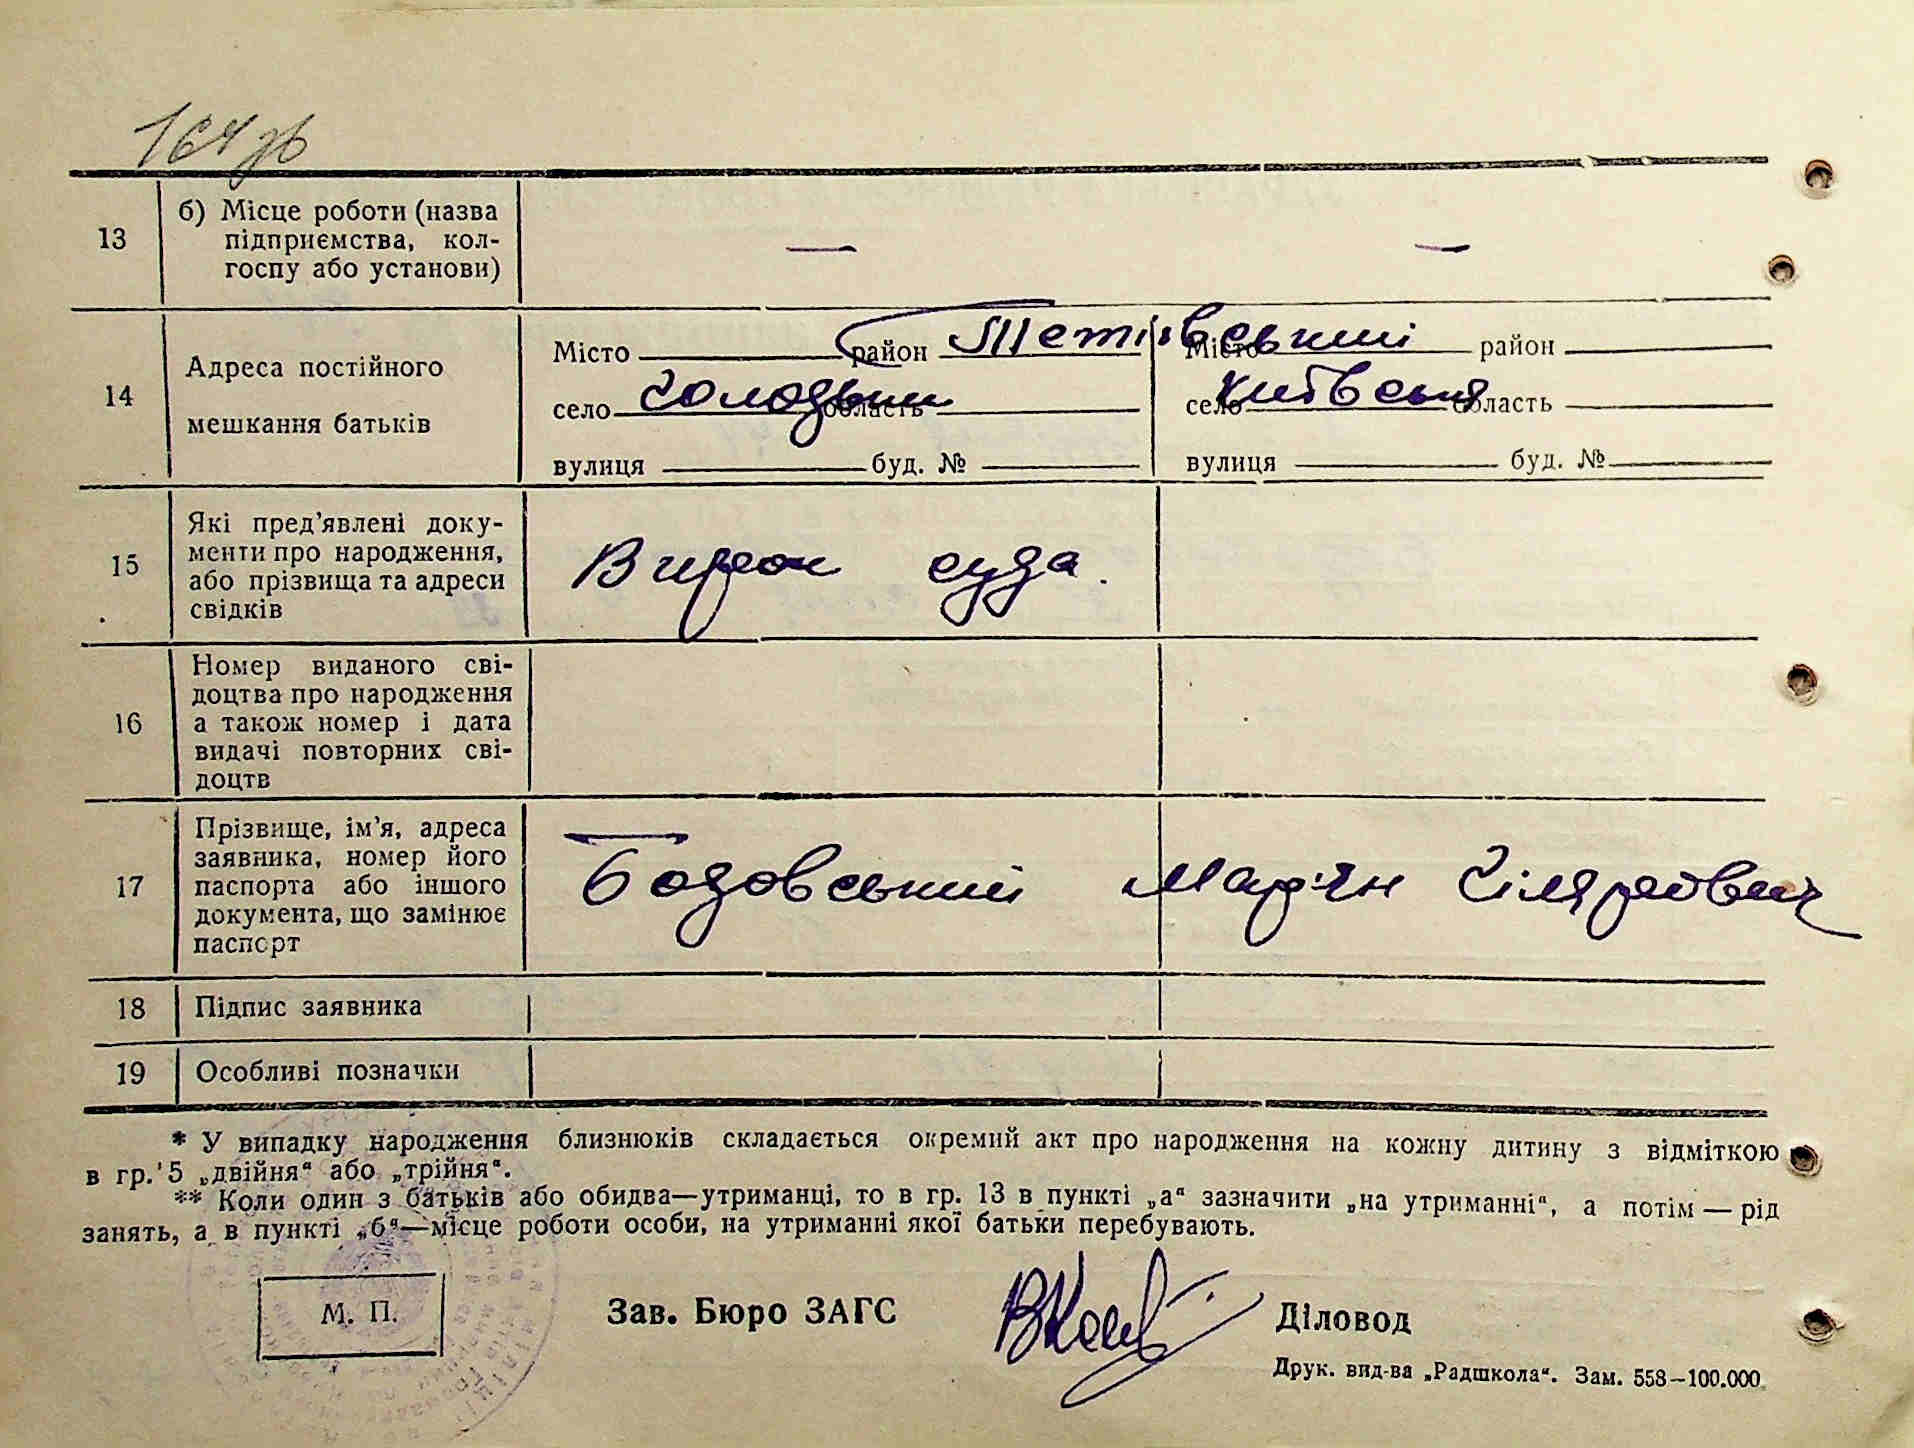 164зв
13
б) Місце роботи (назва
підприємства, кол-
госпу або установи)
— —
14
Адреса постійного
мешкання батьків
Місто район Тетіївський Місто район
село Голодьки область село Київська область
вулиця буд. № вулиця буд. №
15
Які пред’явлені доку-
менти про народження,
або прізвища та адреси
свідків
Вирок суда.
16
Номер виданого сві-
доцтва про народження
а також номер і дата
видачі повторних сві-
доцтв
17
Прізвище, ім’я, адреса
заявника, номер його
паспорта або іншого
документа, що замінює
паспорт
Бодовський Мар'ян Гілярійович
18 Підпис заявника
19 Особливі позначки
* У випадку народження близнюків складається окремий акт про народження на кожну дитину з відміткою
в гр. 5 „двійня“ або „трійня“.
** Коли один з батьків або обидва—утриманці, то в гр. 13 в пункті „а“ зазначити „на утриманні“, а потім — рід
занять, а в пункті „б“—місце роботи особи, на утриманні якої батьки перебувають.
М. П.
Зав. Бюро ЗАГС
Діловод
Друк. вид-ва „Радшкола“. Зам. 558—100.000.